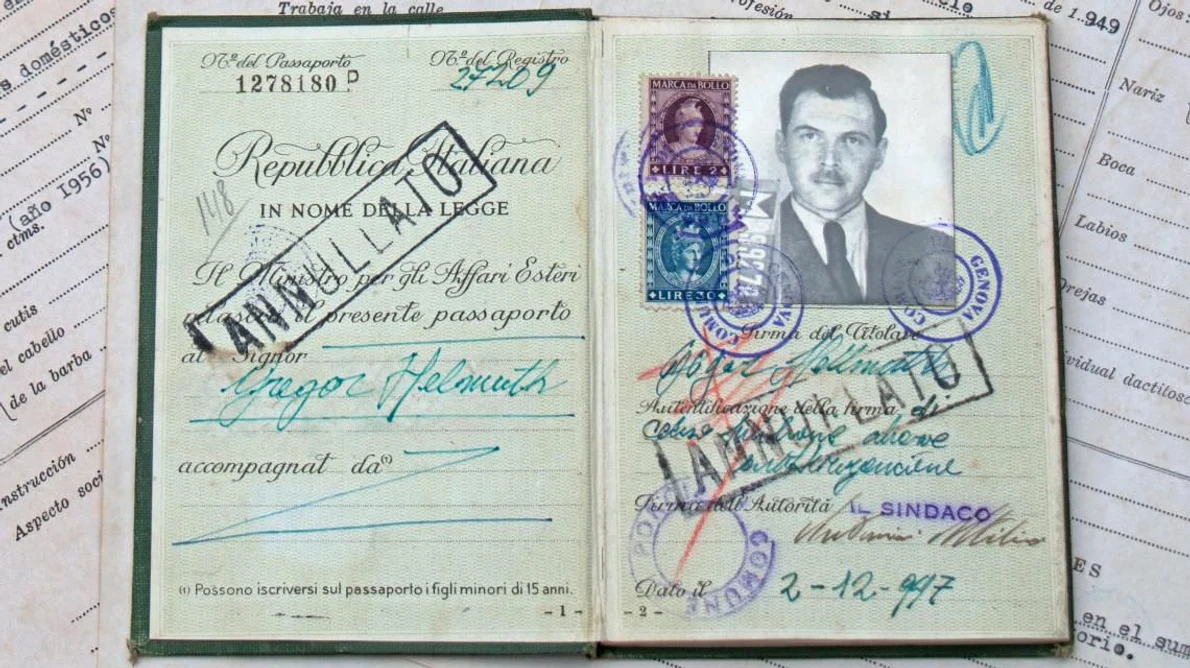 Trabaja en la calle
s domésticos
Nº
Nº
(año 1956)
ctms.
cutis
el cabello
de la barba
Instrucción
Aspecto soci
Nº del Passaporto
Nº del Registro
1278180 P
27209
148
Repubblica Italiana
IN NOME DELLA LEGGE
Il Ministro per gli Affari Esteri
rilascia il presente passaporto
al Signor
Gregor Helmuth
accompagnat da(1)
ANNULLATO
(1) Possono iscriversi sul passaporto i figli minori di 15 anni.
- 1 -
MARCA DA BOLLO
LIRE 2
MARCA DA BOLLO
LIRE
GENOVA
COMUNE
GENOVA
Firma del Titolare
Autentificazione della firma di
ANNULLATO
Firma dell'Autorità IL SINDACO
COMUNE
Dato il 2-12-947
- 2 -
ofesión
de 1.949
Ojos:
Nariz
Boca
Labios
Orejas
vidual dactilosc
ES
en el sum
orio.